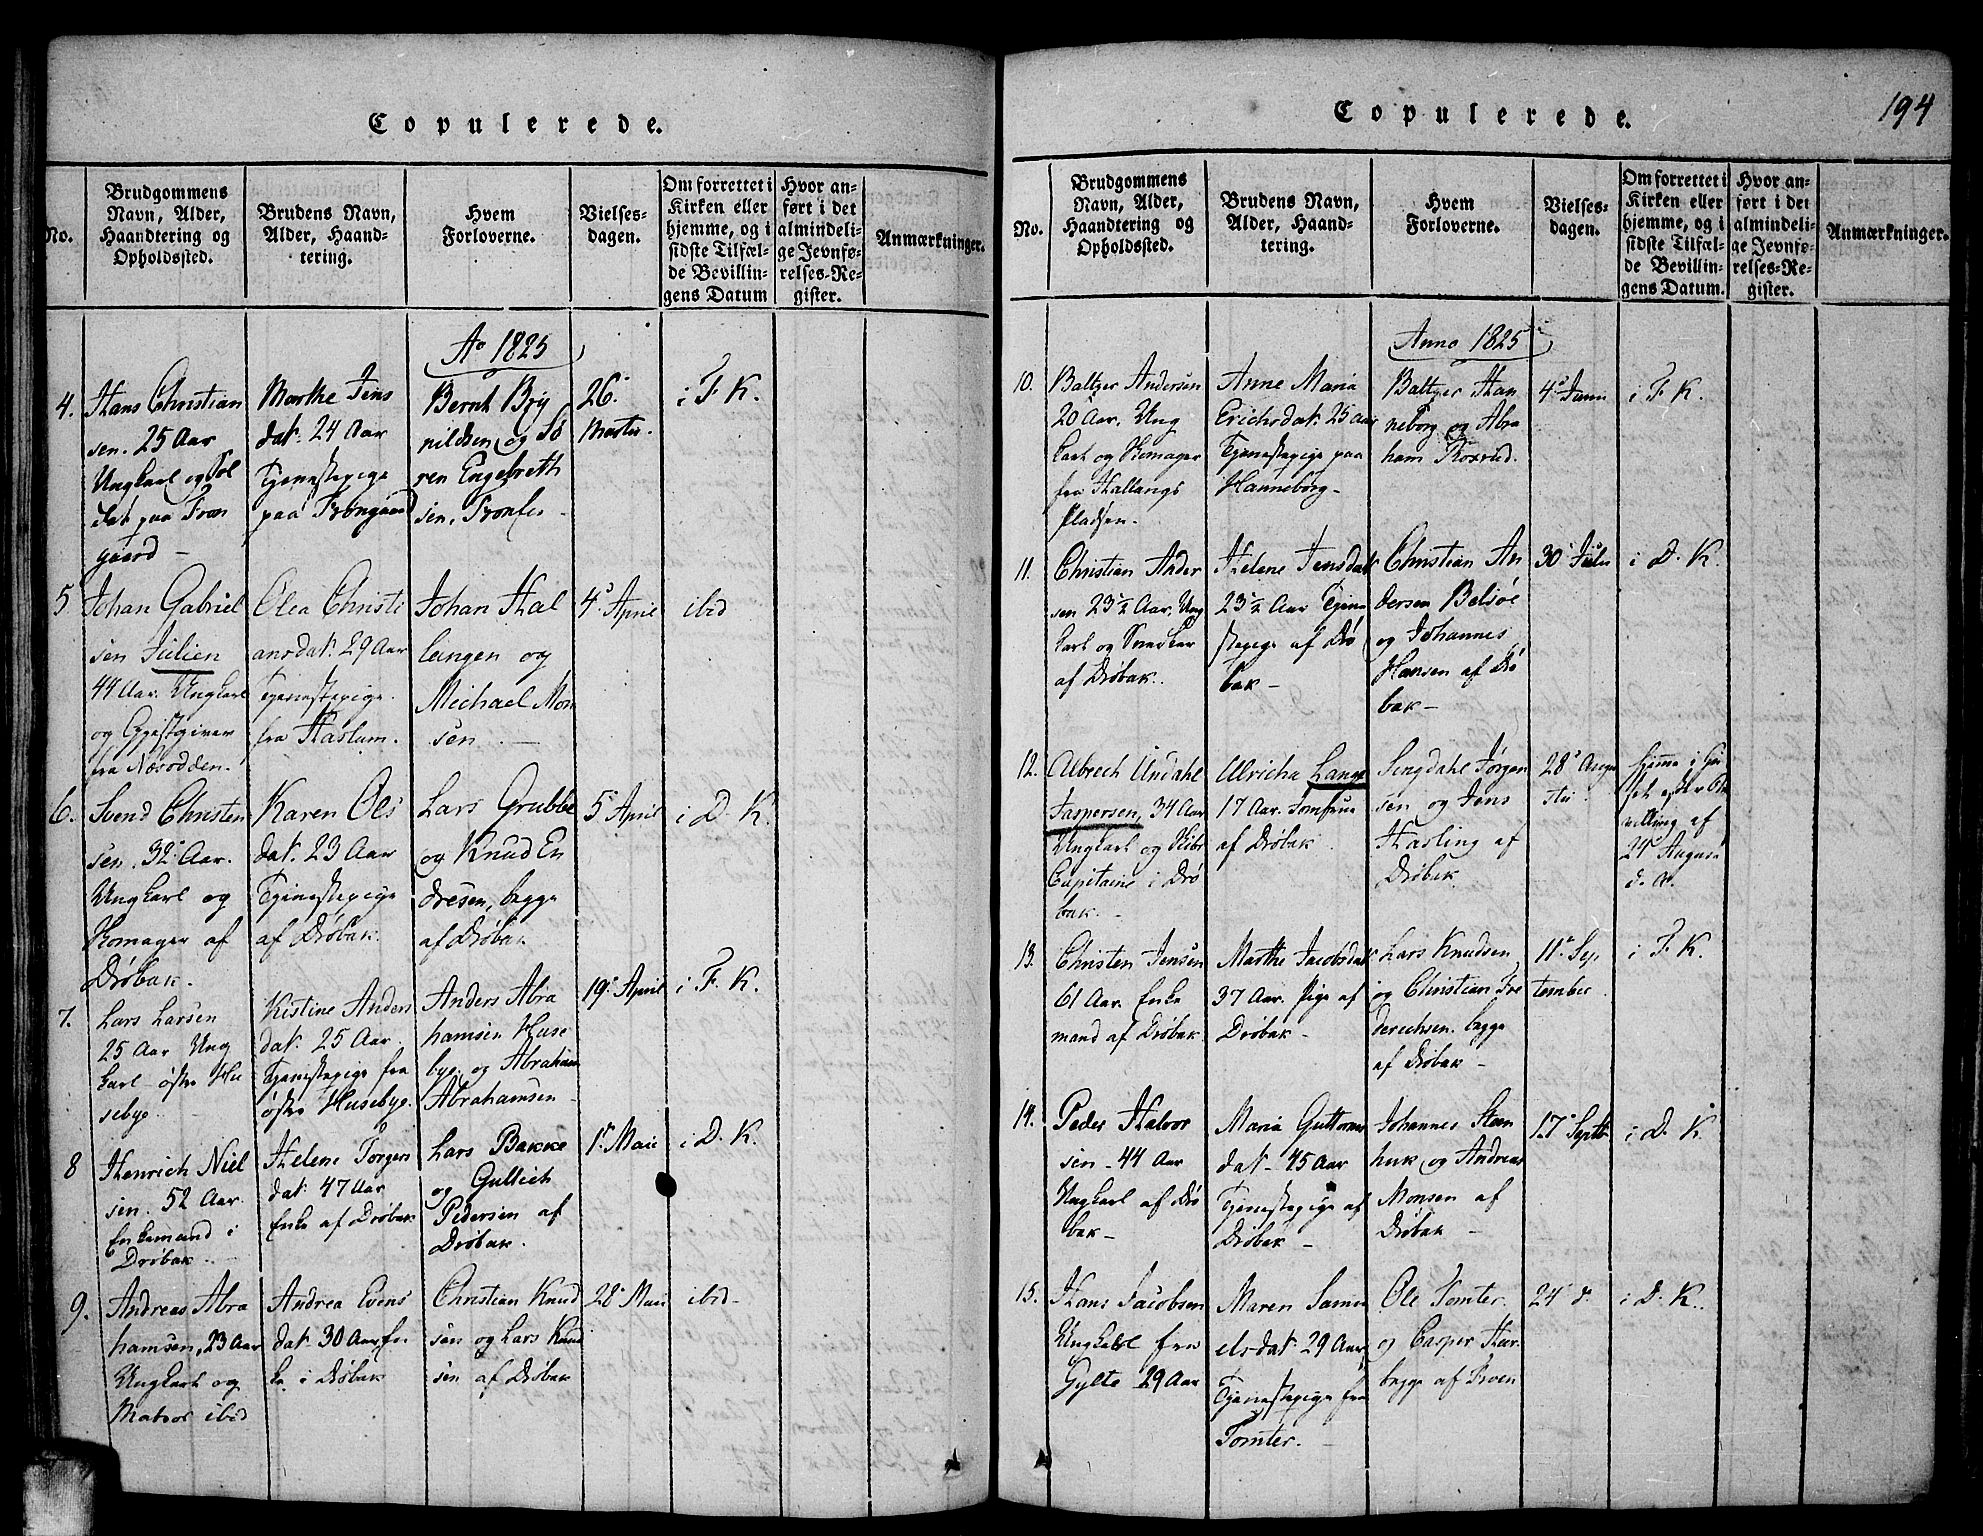 Copulerede.
No.
Brudgommens
Navn, Alder,
Haandtering og
Opholdssted.
Brudens Navn,
Alder, Haand-
tering.
Hvem
Forloverne.
Vielses-
dagen.
Om forrettet i
Kirken eller
hjemme, og i
sidste Tilfæl-
de Bevillin-
gens Datum
Hvor an-
ført i det
almindeli-
ge Jevnfø-
relses-Re-
gister.
Anmærkninger.
Ao 1825
4.
Hans Christian
sen. 25 Aar
Ungkarl og Sol
dat paa Fron
gaard –
Marthe Jens
dat: 24 Aar
Tjenestepige
paa Frongaard
Bernt Bry
nildsen og Sö
ren Engebreth
sen,
26.
Martii.
i F. K.
5
Johan Gabriel
sen Julien
44 Aar. Ungkarl
og Gjestgiver
fra Næsodden.
Olea Christi
ansdat: 29 Aar
Tjenestepige
fra Haslum.
Johan Hal
langen og
Michael Mon
sen –
4 April
ibid
6.
Svend Christen
sen. 32 Aar.
Ungkarl og
Skomager af
Drøbak.
Karen Ols
dat: 23 Aar
Tjenestepige
af Drøbak.
Lars Grubbe
og Knud En
dresen, begge
af Drøbak
5 April
i D. K.
7.
Lars Larsen
25 Aar Ung
karl – østre Hu
sebye.
Kistine Anders
dat: 25 Aar.
Tjenestepige fra
østre Husebye.
Anders Abra
hamsen Huse
bye og Abraham
Abrahamsen –
19 April
i F. K.
8
Henrich Niel
sen. 52 Aar.
Enkemand i
Drøbak.
Helene Jørgens
dat: 47 Aar
Enke af Drøbak
Lars Bakke
og Gullich
Pedersen af
Drøbak.
1 Maii
i D. K.
9.
Andreas Abra
hamsen, 23 Aar
Ungkarl og
Matros ibid
Andrea Evens
dat: 30 Aar, En
ke i Drøbak
Christian Knud
sen og Lars Knud
sen af Drøbak
28 Maii
ibid –
Copulerede.
194
No.
Brudgommens
Navn, Alder,
Haandtering og
Opholdssted.
Brudens Navn,
Alder, Haand-
tering.
Hvem
Forloverne.
Vielses-
dagen.
Om forrettet i
Kirken eller
hjemme, og i
sidste Tilfæl-
de Bevillin-
gens Datum.
Hvor an-
ført i det
almindeli-
ge Jevnfø-
relses-Re-
gister.
Anmærkninger.
Anno 1825
10.
Baltzer Andersen
20 Aar. Ung
karl og Skomager
fra Hallangs
pladsen.
Anne Maria
Erichsdat: 25 Aar
Tjenestepige paa
Hanneborg –
Baltzer Han
neborg og Abra
ham Skoxrud.
4 Junii
i F. K.
11.
Christian Ander
sen 23½ Aar. Ung
karl og Snedker
af Drøbak.
Helene Jensdat
23½ Aar Tjene
stepige af Drø
bak –
Christian An
dersen Belsöe
og Johannes
Hansen af Drø
bak –
30 Julii
i D. K.
12.
Albrech Undahl
Jaspersen, 34 Aar
Ungkarl og Skibs
Capitaine i Drø
bak. –
Ulricha Lange
17 Aar. Jomfrue
af Drøbak.
Sengdahl Jørgen
sen og Jens
Hasling af
Drøbak.
28 Augu
sti
hjemme i Hu
set efter Be
villing af
24 August
d. A.
13.
Christen Jensen
61 Aar. Enke
mand af Drøbak
Marthe Jacobsdat
37 Aar. Pige af
Drøbak –
Lars Knudsen
og Christian Fre
derichsen. begge
af Drøbak –
11 Sep
tember
i F. K.
14.
Peder Halvor
sen – 44 Aar
Ungkarl af Drø
bak –
Maria Guttorms
dat – 45 Aar
Tjenestepige af
Drøbak –
Johannes Sten
huk og Andreas
Monsen af
Drøbak –
17 Septb
i D. K.
15.
Hans Jacobsen
Ungkarl fra
Gylte 29 Aar
Maren Samu
elsdat: 29 Aar
Tjenestepige fra
Tomter. –
Ole Tomter.
og Casper Hur.
begge af Skoen
24 d.
i D. K.